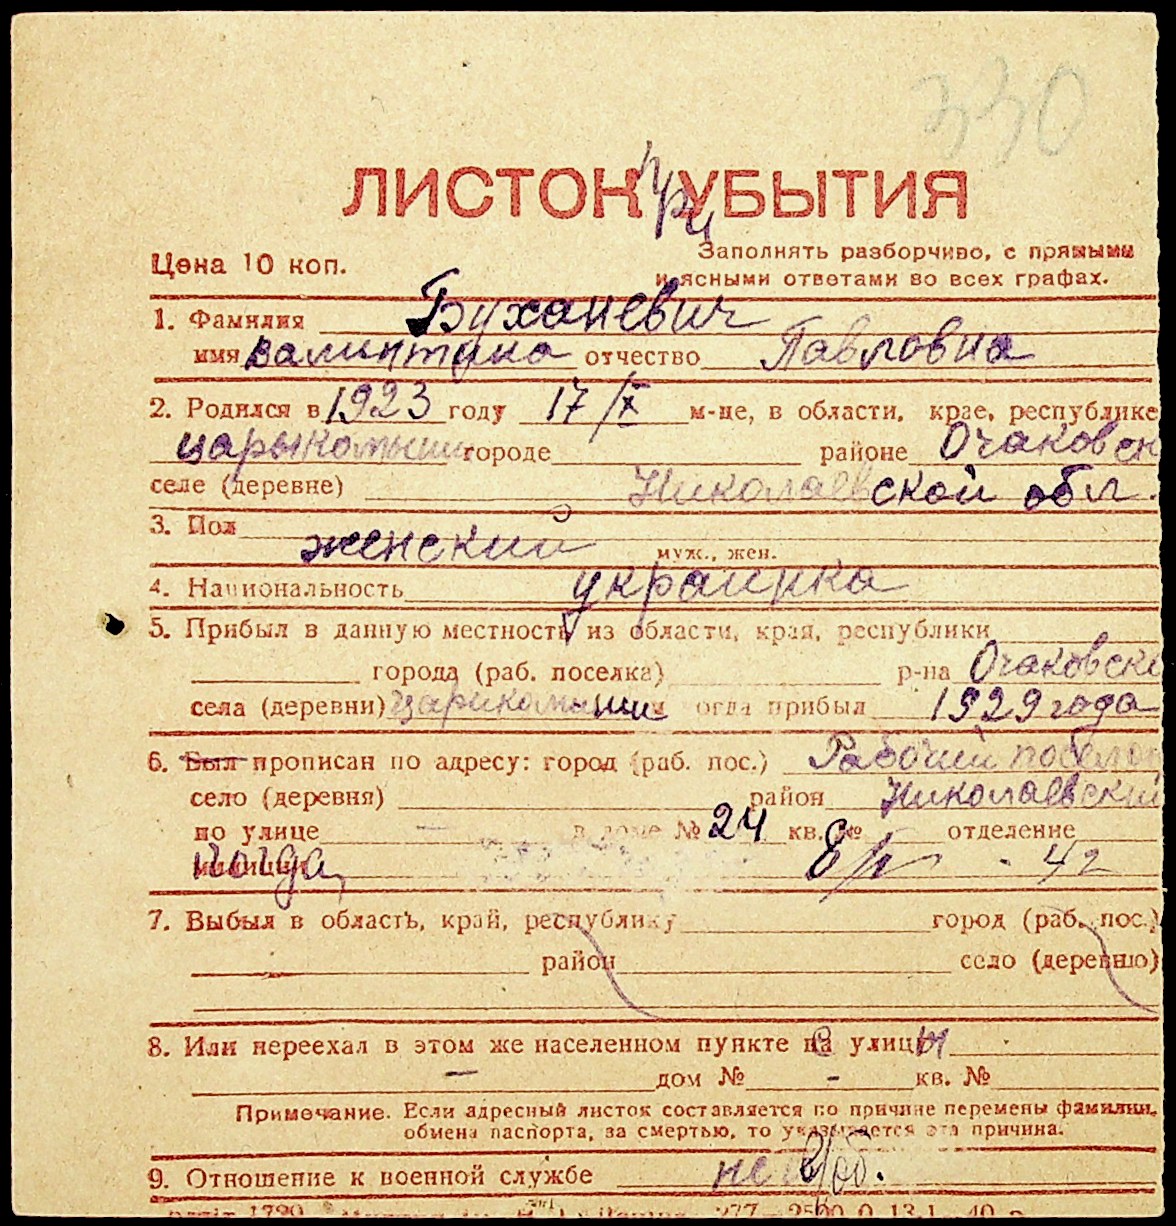 330
ЛИСТОК при УБЫТИЯ
Цена 10 коп.
Заполнять разборчиво, с прямыми
и ясными ответами во всех графах.
1. Фамилия Буханевич
имя Валинтина отчество Павловна
2. Родился в 1923 году 17/X м-це, в области, крае, республике
царыкамыши городе районе Очаковск
селе (деревне) Николаевской обл.
3. Пол женский муж., жен.
4. Национальность украинка
5. Прибыл в данную местность из области, края, республики
города (раб. поселка) р-на Очаковско
села (деревни) царикамыши огда прибыл 1929 года
6. Был прописан по адресу: город (раб. пос.) Рабочий поселок
село (деревня) район Николаевский
по улице – в доме № 24 кв. № отделение
милиции когда,
7. Выбыл в область, край, республику город (раб. пос.)
район село (деревню)
8. Или переехал в этом же населенном пункте с улицы
– дом № – кв. №
Примечание. Если адресный листок составляется по причине перемены фамилии,
обмена паспорта, за смертью, то указывается эта причина.
9. Отношение к военной службе не в/об.